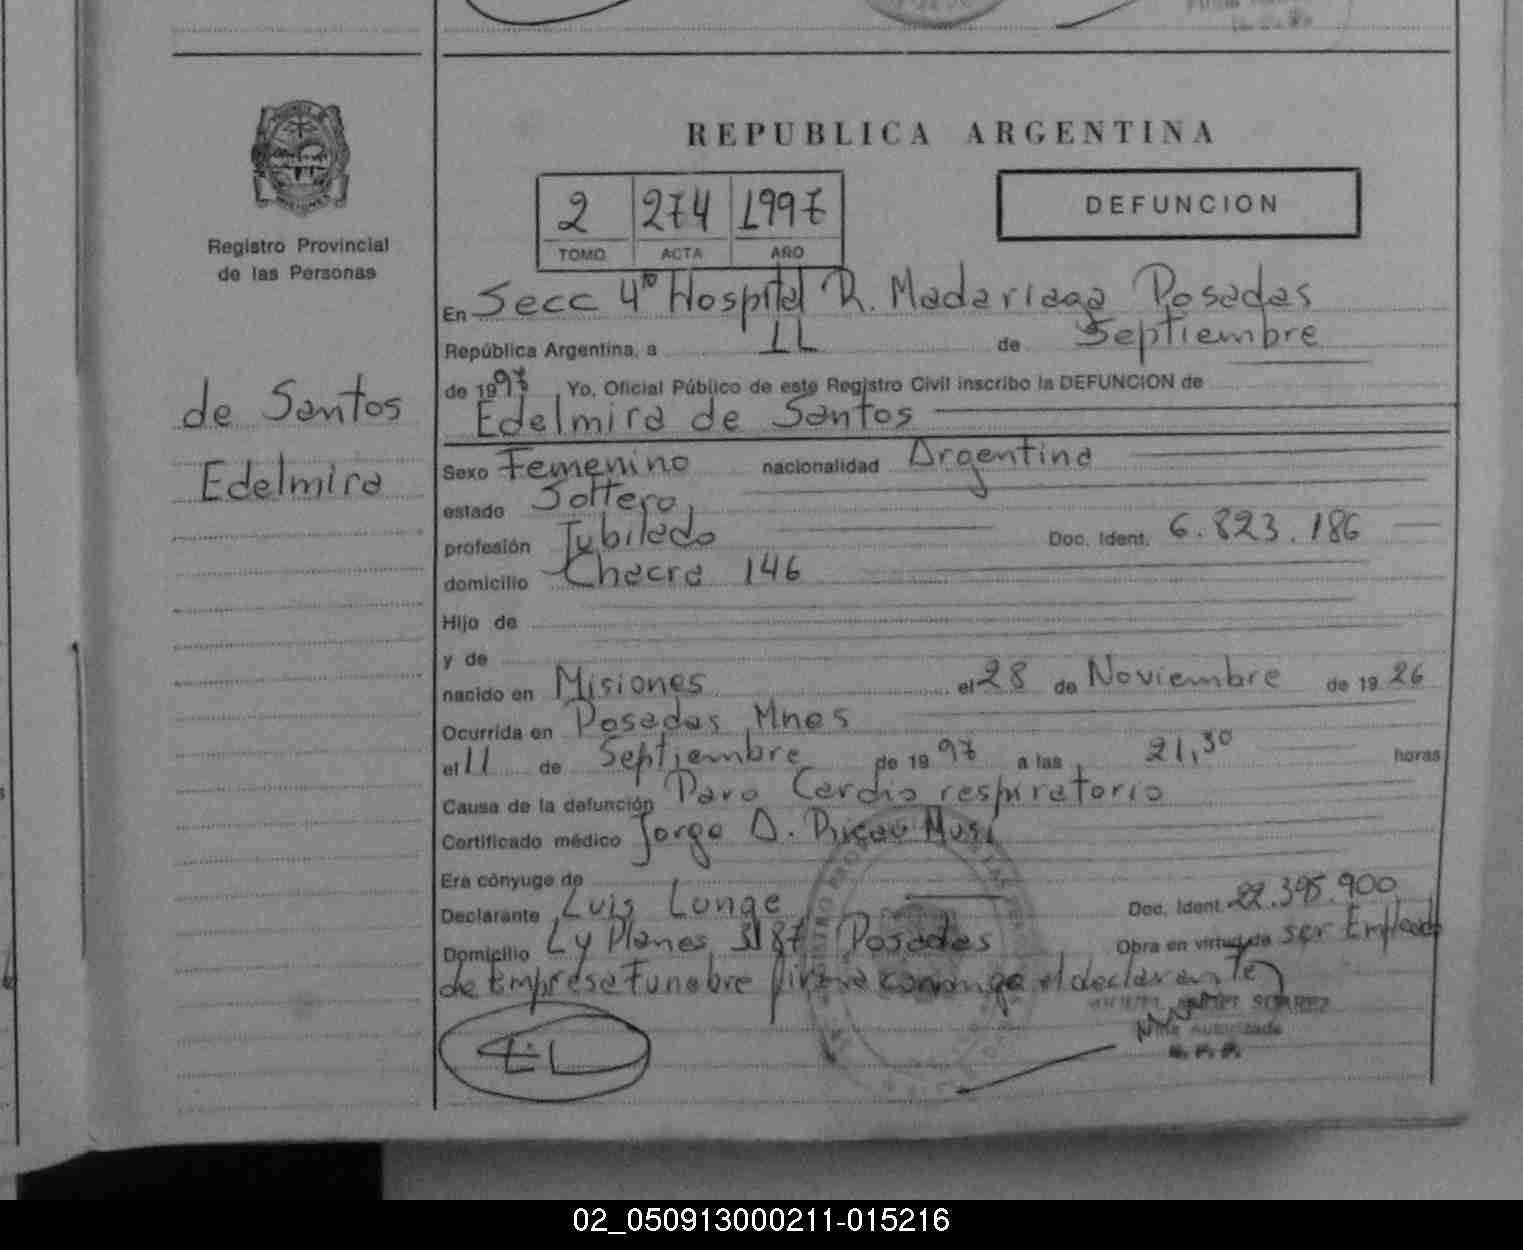 REPUBLICA ARGENTINA
2 274 1997
TOMO ACTA AÑO
DEFUNCION
Registro Provincial
de las Personas
de Santos
Edelmira
En Secc 4ta Hospital R. Madariaga Posadas
República Argentina, a 11 de Septiembre
de 1997, Yo, Oficial Público de este Registro Civil inscribo la DEFUNCION de
Edelmira de Santos
Sexo Femenino nacionalidad Argentina
estado Soltero
profesión Jubilado Doc. Ident. 6.823.186
domicilio Chacra 146
Hijo de
y de
nacido en Misiones el 28 de Noviembre de 1926
Ocurrida en Posadas Mnes
el 11 de Septiembre de 1997 a las 21,30 horas
Causa de la defunción Paro Cardio respiratorio
Certificado médico Jorge D. Musi
Era cónyuge de
Declarante Luis Lunge Doc. Ident. 22.395.900
Domicilio L y Planes 3187 Posadas Obra en virtud de ser Empleado
de Empresa Funebre firma conmigo el declarante
SUAREZ
Autorizada
02_050913000211-015216